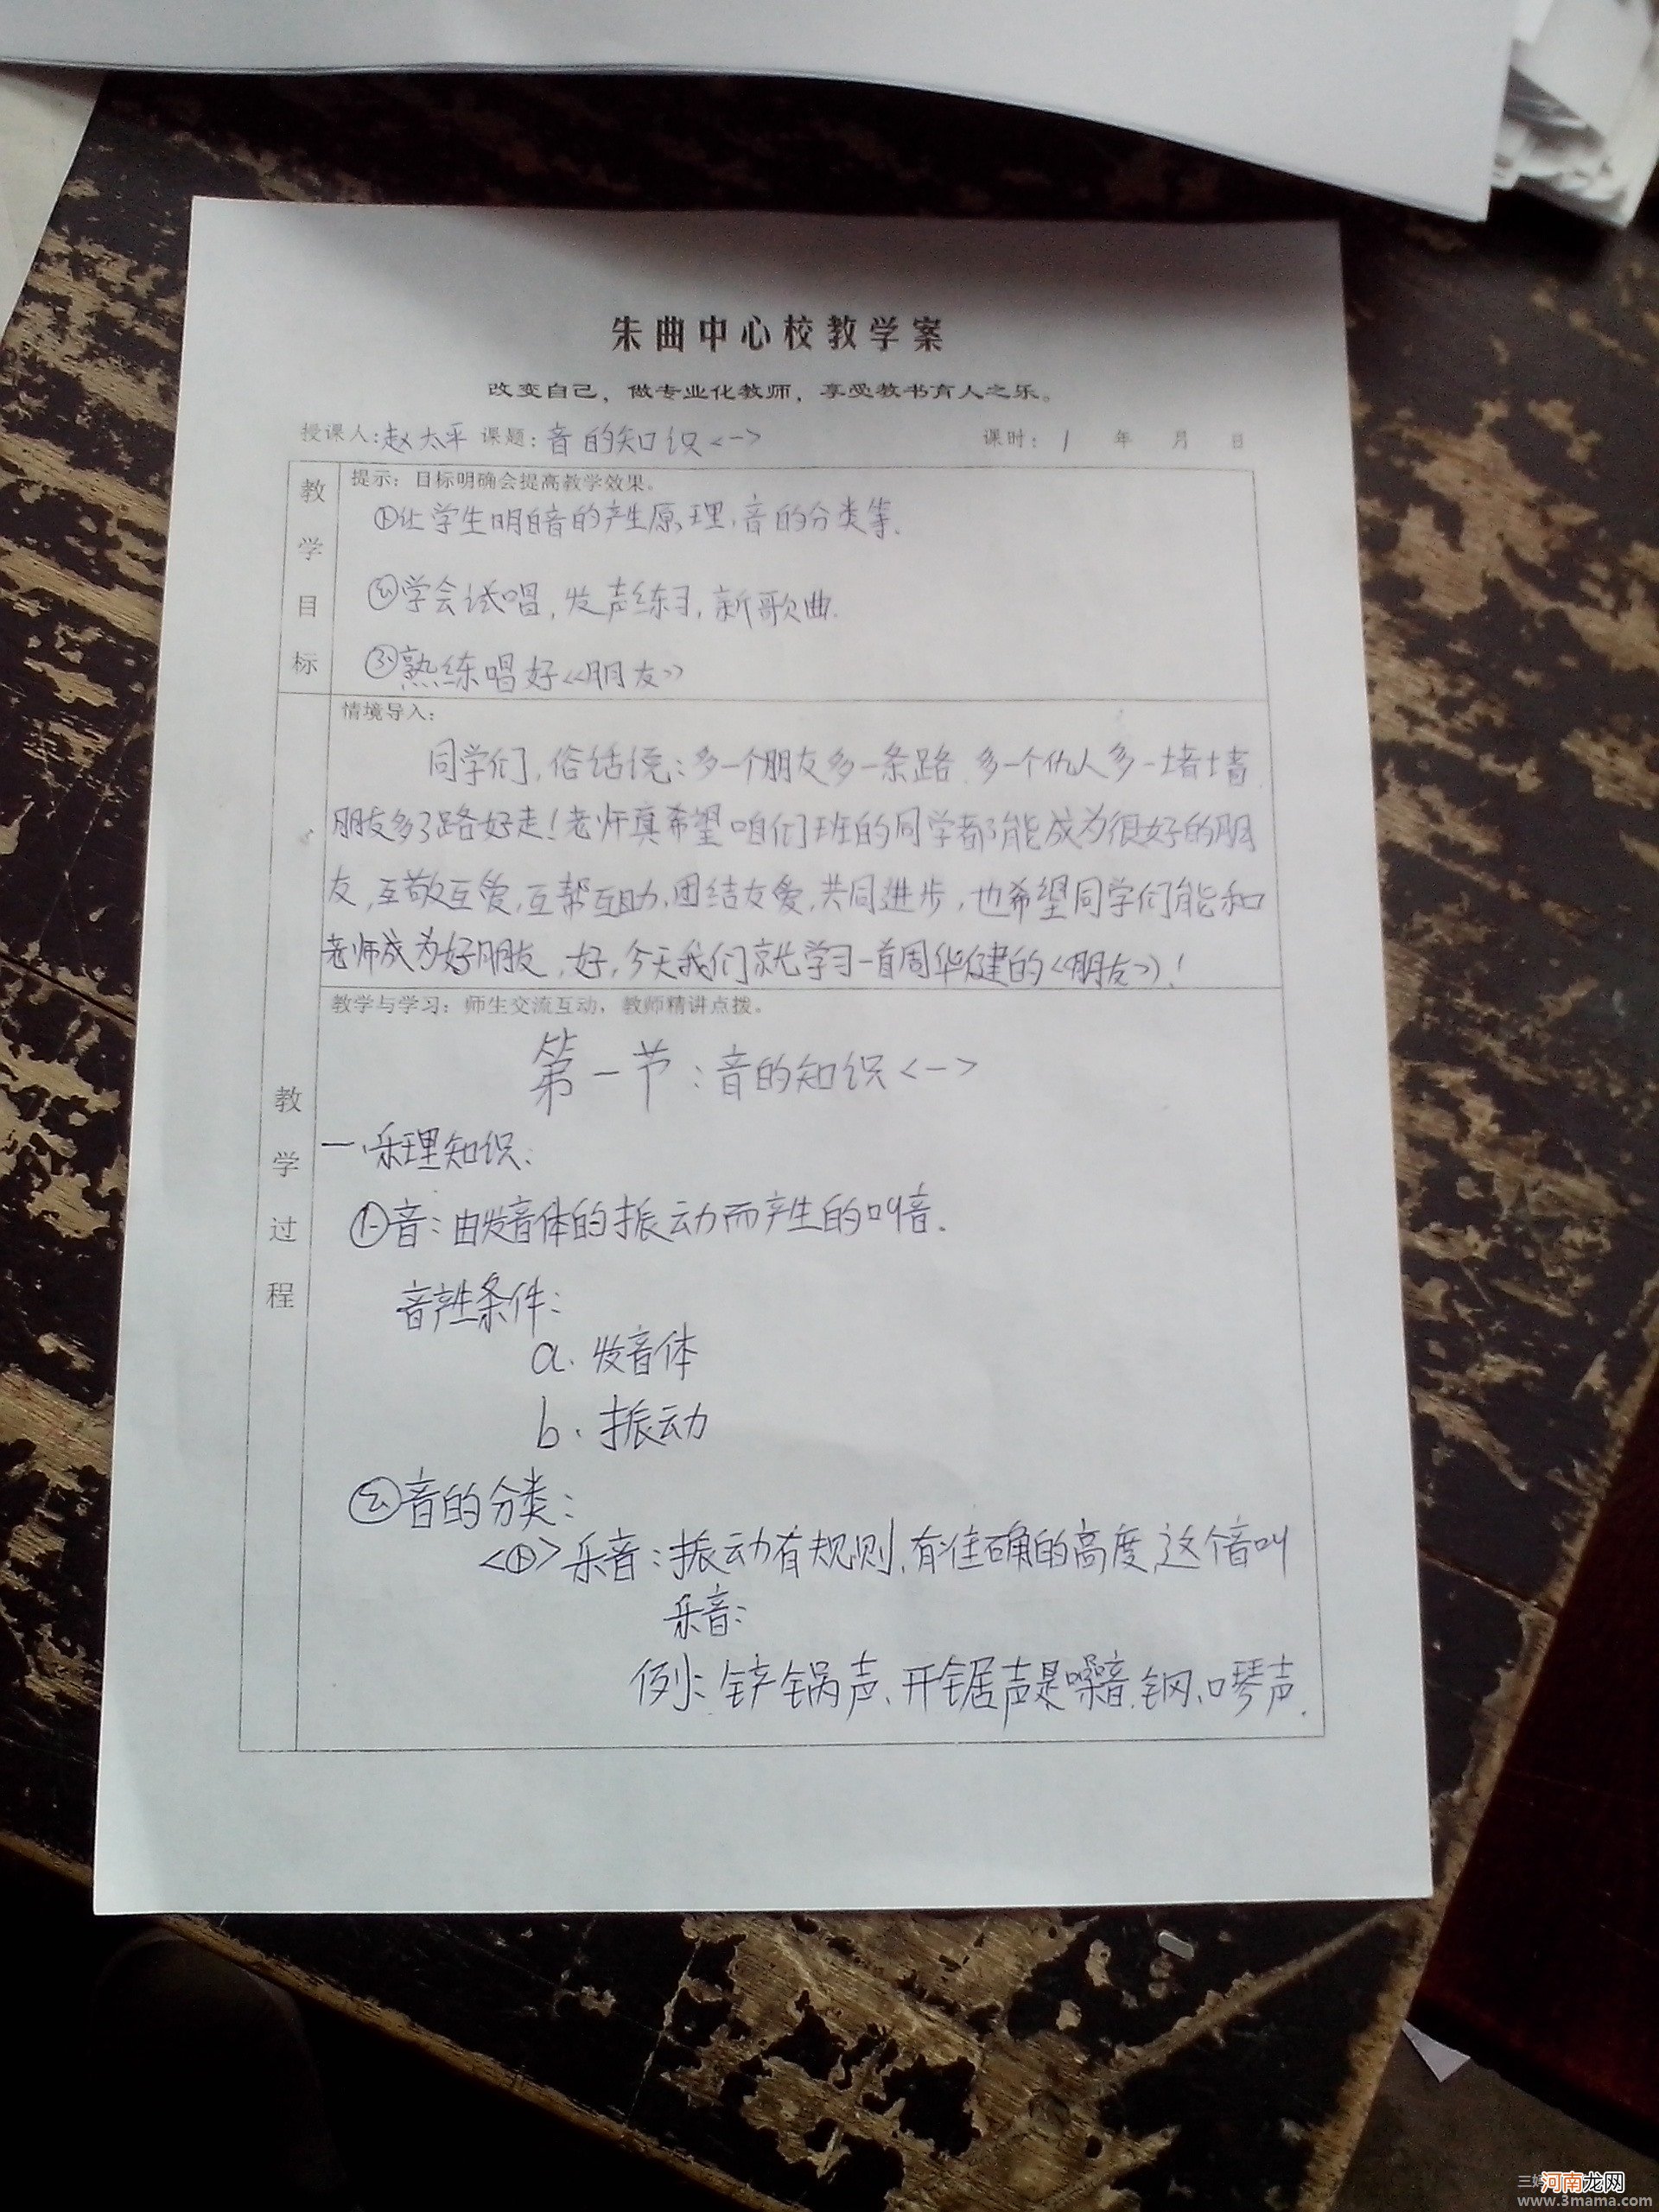 朱曲中心校教学案
改变自己，做专业化教师，享受教书育人之乐。
授课人:赵太平 课题:音的知识<一> 课时: 1 年 月 日
教学目标
提示: 目标明确会提高教学效果。
①让学生明白音的产生原理,音的分类等.
②学会试唱,发声练习,新歌曲.
③熟练唱好《朋友》
教学过程
情境导入:
同学们,俗话说:多一个朋友多一条路,多一个仇人多一堵墙.
朋友多了路好走!老师真希望咱们班的同学都能成为很好的朋
友,互敬互爱,互帮互助,团结友爱,共同进步,也希望同学们能和
老师成为好朋友,好,今天我们就学习一首周华健的《朋友》!
教学与学习: 师生交流互动, 教师精讲点拨。
第一节:音的知识<一>
一、乐理知识:
①音:由发音体的振动而产生的叫音.
音产生条件:
a. 发音体
b. 振动
②音的分类:
<①>乐音:振动有规则,有准确的高度,这个音叫
乐音:
例:铲锅声、开锯声是噪音,钢、口琴声.
河南龙网
www.3mama.com